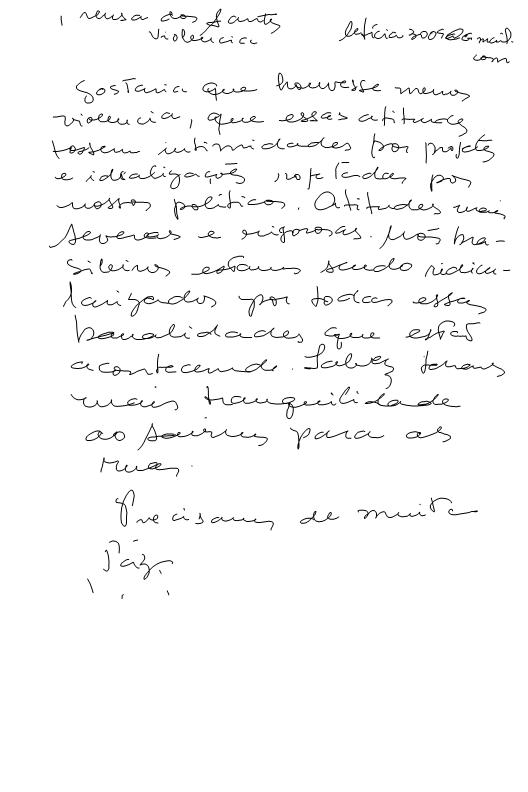 dos Santos
Violência
letícia3009@gmail.
com
Gostaria que houvesse menos
violencia, que essas atitudes
fossem intimidades por projetos
e idealizações, rojetadas por
nossos políticos. Atitudes mais
severas e rigorosas. Nós bra-
sileiros estamos sendo ridicu-
larizados por todas essas
banalidades que estão
acontecendo. Talvez teremos
mais tranquilidade
ao sairmos para as
ruas.
Precisamos de muita
Páz.